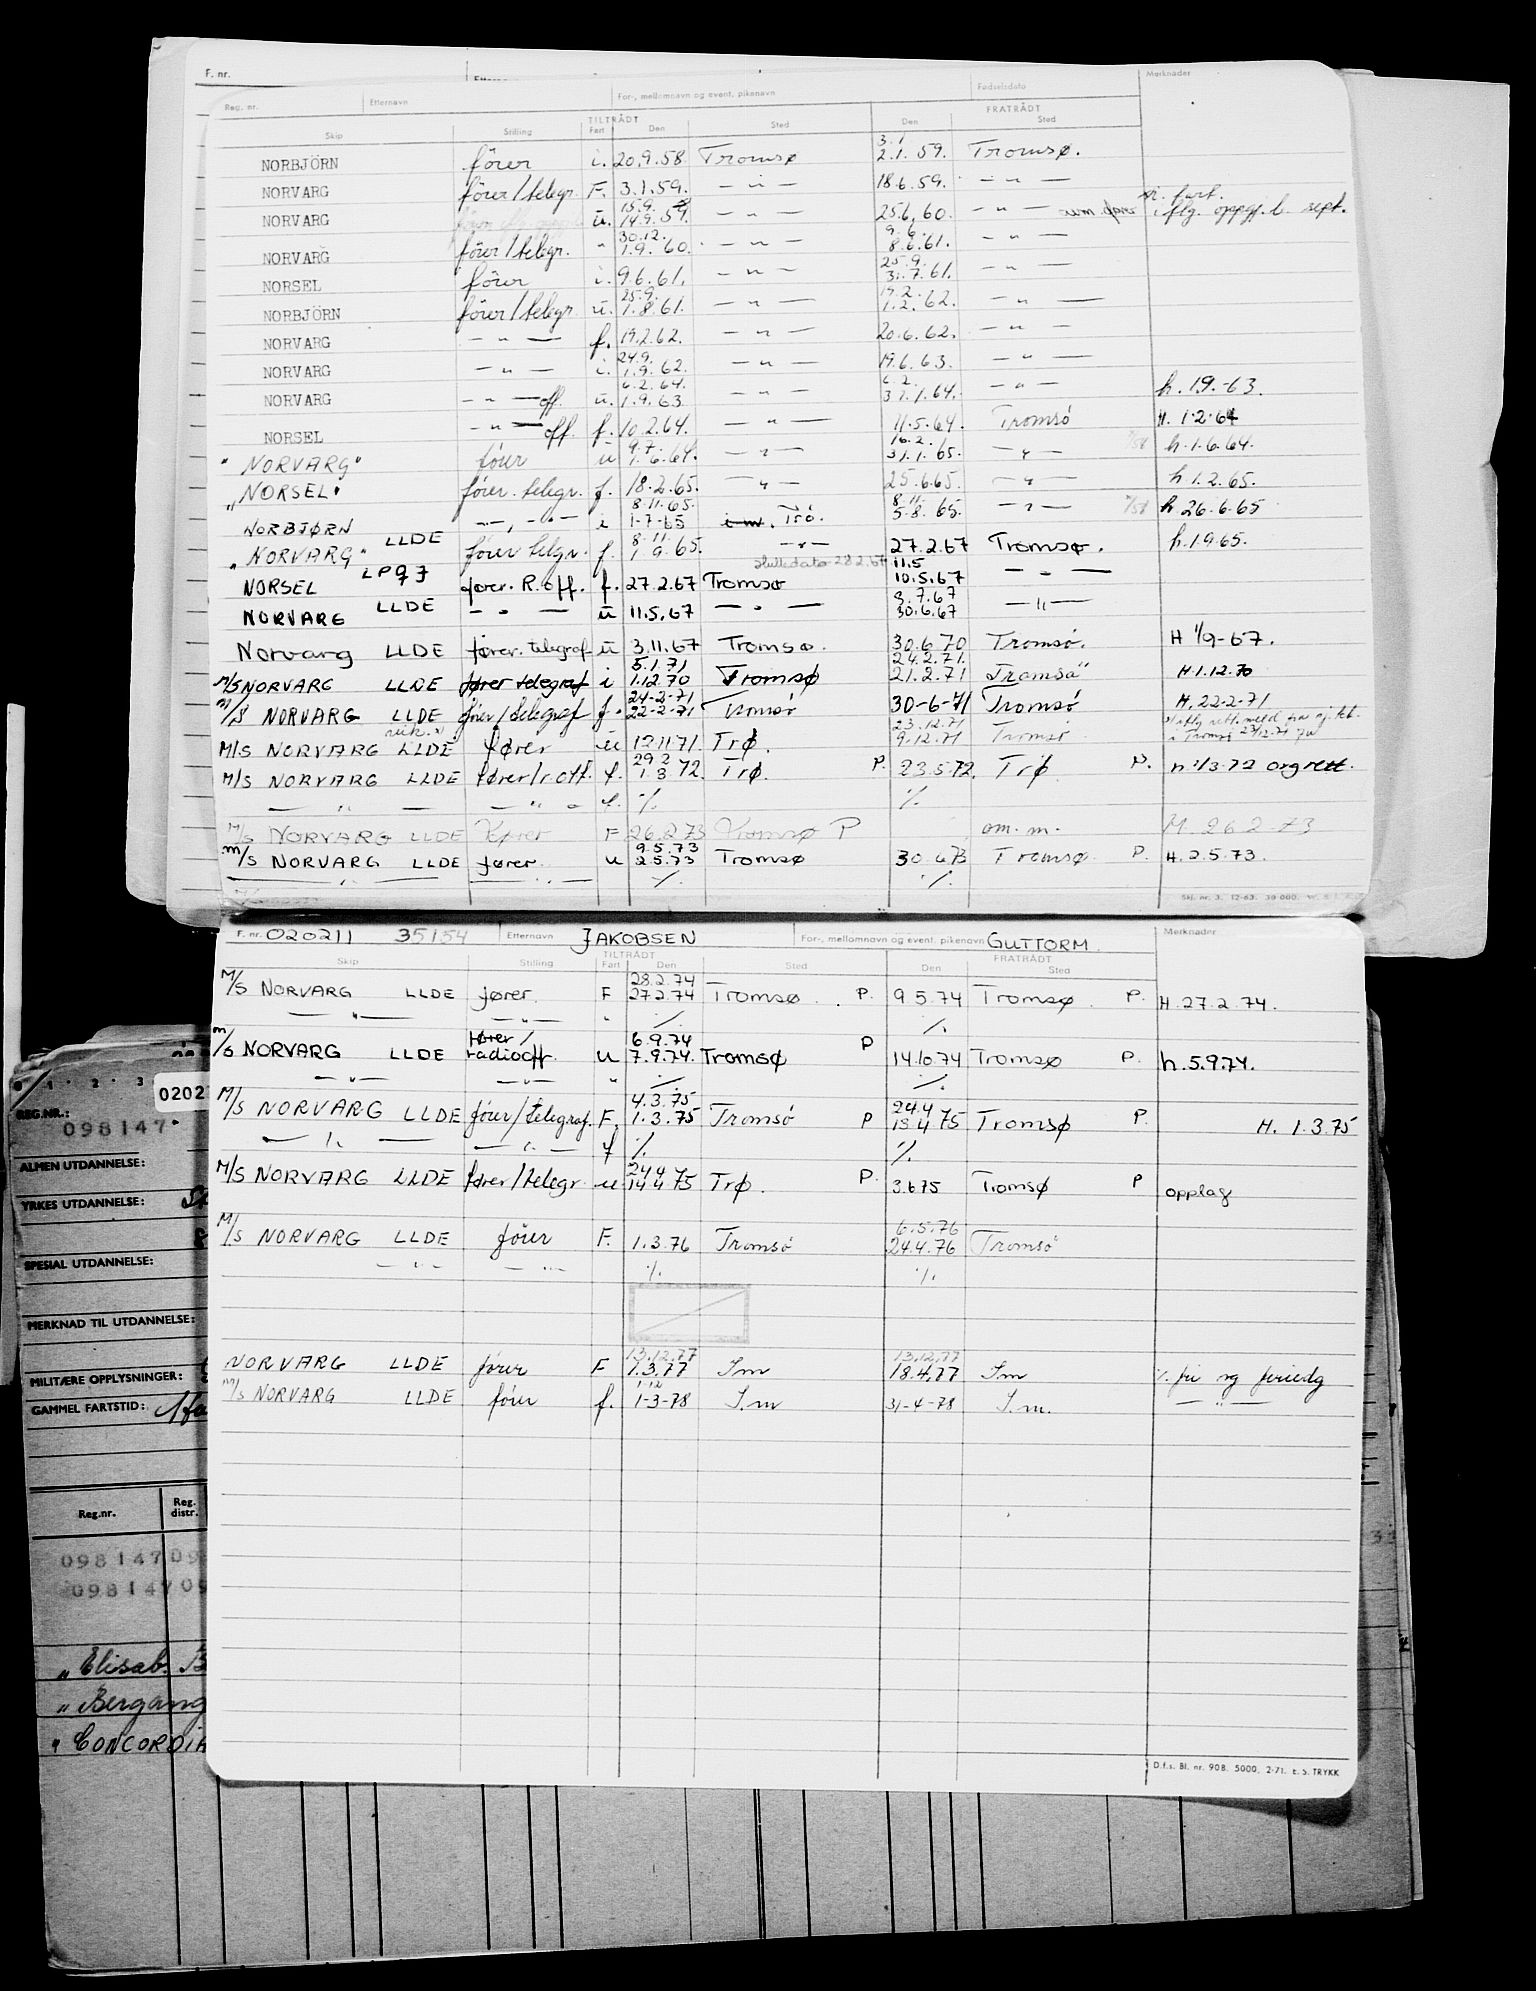 F. nr.
Reg. nr. Etternavn For-, mellomnavn og event. pikenavn Fødselsdato Merknader
TILTRÅDT FRATRÅDT
Skip Stilling Fart Den Sted Den Sted
3.1
NORBJÖRN förer i. 20.9.58 Tromsø 2.1.59. Tromsø.
NORVARG förer/telegr. F. 3.1.59. — " — 18.6.59. — " —
15.9.
NORVARG u. 14.9.59. — " — 25.6.60. — " — i flg. oppgj. l. sept.
30.12. 9.6.
NORVARG förer/telegr. " 1.9.60. — " — 8.6.61. — " —
25.9.
NORSEL förer i. 9.6.61. — " — 31.7.61. — " —
25.9. 19.2.
NORBJÖRN förer/telegr. u. 1.8.61. — " — 1.2.62. — " —
NORVARG — " — f. 19.2.62. — " — 20.6.62. — " —
24.9.
NORVARG — " — i. 1.9.62. — " — 19.6.63. — " —
6.2.64. 6.2.
NORVARG — " — off. u. 1.9.63 — " — 31.1.64. — " — h. 1.9.-63.
NORSEL — " — off. f. 10.2.64. — " — 11.5.64. Tromsö H. 1.2.64
9.7. 16.2.
"NORVARG" förer u 1.6.64. — " — 31.1.65. — " — h.1.6.64.
"NORSEL" förer. telegr. f. 18.2.65. — " — 25.6.65. — " — h 1.2.65.
8.11.65. 8.11.
NORBJØRN — " — i 1-7-65 Trö. 5.8.65. — " — h. 26.6.65
8.11.
"NORVARG" LLDE förer telgr. f. 1.9.65. — " — 27.2.67 Tromsø. h.1.9.65.
11.5
NORSEL LPQJ fører. R.off. f. 27.2.67 Tromsø 10.5.67 — " —
8.7.67
NORVARG LLDE — " — u 11.5.67 — " — 30.6.67 — " —
Norvarg LLDE fører. telegraf u 3.11.67 Tromsø. 30.6.70 Tromsö. H 1/9-67.
5.1.71 24.2.71.
M/S NORVARG LLDE fører telegraf i 1.12.70 Tromsø 21.2.71 Tromsö H.1.12.70
24-2-71
M/S NORVARG LLDE förer/telegraf f. 22-2-71 Tromsö 30-6-71 Tromsö H. 22-2-71
23.12.71
M/S NORVARG LLDE fører u 12.11.71. Trø. 9.12.71 Tromsö i Tromsö
29 2
M/S NORVARG LLDE fører/r.off. f. 1.3.72. Trø. P. 23.5.72. Trø P. h 1/3-72 org rett.
— " — — " — f. ./. ./.
M/S NORVARG LLDE Fører F 26.2.73 Tromsø P om. m. M. 26.2.73
9.5.73
M/S NORVARG LLDE fører. u 2.5.73 Tromsø 30.6.73 Tromsø. P. H.2.5.73.
— " — — " — ./. ./.
Skj. nr. 3. 12-63. 30 000.
F. nr. 020211 35154 Etternavn JAKOBSEN For-, mellomnavn og event. pikenavn GUTTORM. Merknader
TILTRÅDT FRATRÅDT
Skip Stilling Fart Den Sted Den Sted
28.2.74
M/S NORVARG LLDE fører. F 27.2.74 Tromsø. P. 9.5.74 Tromsø. P. H.27.2.74.
— " — — " — " ./. ./.
fører/ 6.9.74
M/S NORVARG LLDE radiooff. u 7.9.74. Tromsø P 14.10.74 Tromsø P. h.5.9.74.
— " — — " — " ./. ./.
4.3.75 24.4
M/S NORVARG LLDE förer/telegraf. F. 1.3.75 Tromsö P 13.4.75 Tromsø P. H. 1.3.75
— " — — " — f ./. ./.
24.4
M/S NORVARG LLDE fører/telegr. u 14.4.75 Trø. P. 3.6.75 Tromsø P opplag
6.5.76
M/S NORVARG LLDE förer F. 1.3.76 Tromsö 24.4.76 Tromsö
— " — — " — ./. ./.
13.12.77 13.12.77
NORVARG LLDE förer F 1.3.77 I.m 18.4.77 I.m
M/S NORVARG LLDE förer f. 1-3-78 I.m 31-4-78 I.m. — " —
D.f.s. Bl. nr. 908. 5000, 2-71. E. S. TRYKK
0 · 1 · 2 · 3
0202
REG.NR.:
098147
ALMEN UTDANNELSE:
YRKES UTDANNELSE:
SPESIAL UTDANNELSE:
MERKNAD TIL UTDANNELSE:
MILITÆRE OPPLYSNINGER:
GAMMEL FARTSTID:
Reg.nr. Reg. distr.
098147 09
098147 09
" Elisab. B
" Bergang
" CONCORDIA